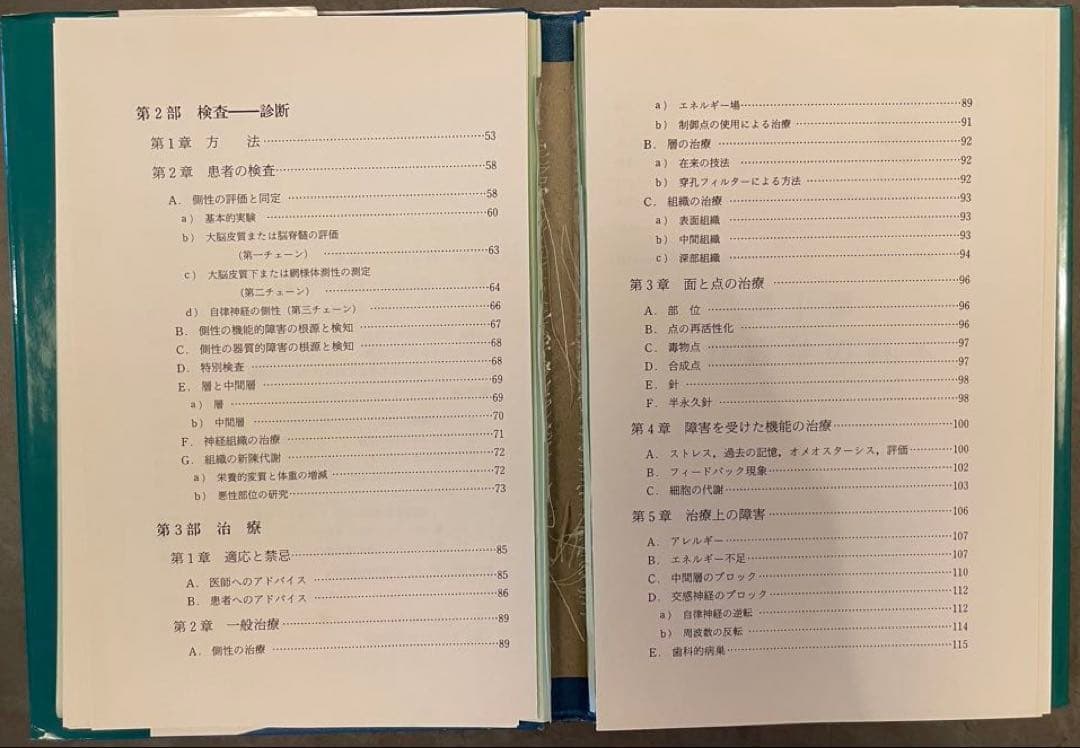 第2部 検査――診断
第1章 方　法…………53
第2章 患者の検査…………58
A. 側性の評価と同定…………58
a) 基本的実験…………60
b) 大脳皮質または脳脊髄の評価
(第一チェーン)…………63
c) 大脳皮質下または網様体測性の測定
(第二チェーン)…………64
d) 自律神経の側性(第三チェーン)…………66
B. 側性の機能的障害の根源と検知…………67
C. 側性の器質的障害の根源と検知…………68
D. 特別検査…………68
E. 層と中間層…………69
a) 層…………69
b) 中間層…………70
F. 神経組織の治療…………71
G. 組織の新陳代謝…………72
a) 栄養的変質と体重の増減…………72
b) 悪性部位の研究…………73
第3部 治　療
第1章 適応と禁忌…………85
A. 医師へのアドバイス…………85
B. 患者へのアドバイス…………86
第2章 一般治療…………89
A. 側性の治療…………89
a) エネルギー場…………89
b) 制御点の使用による治療…………91
B. 層の治療…………92
a) 在来の技法…………92
b) 穿孔フィルターによる方法…………92
C. 組織の治療…………93
a) 表面組織…………93
b) 中間組織…………93
c) 深部組織…………94
第3章 面と点の治療…………96
A. 部　位…………96
B. 点の再活性化…………96
C. 毒物点…………97
D. 合成点…………97
E. 針…………98
F. 半永久針…………98
第4章 障害を受けた機能の治療…………100
A. ストレス，過去の記憶，オメオスターシス，評価…………100
B. フィードバック現象…………102
C. 細胞の代謝…………103
第5章 治療上の障害…………106
A. アレルギー…………107
B. エネルギー不足…………107
C. 中間層のブロック…………110
D. 交感神経のブロック…………112
a) 自律神経の逆転…………112
b) 周波数の反転…………114
E. 歯科的病巣…………115